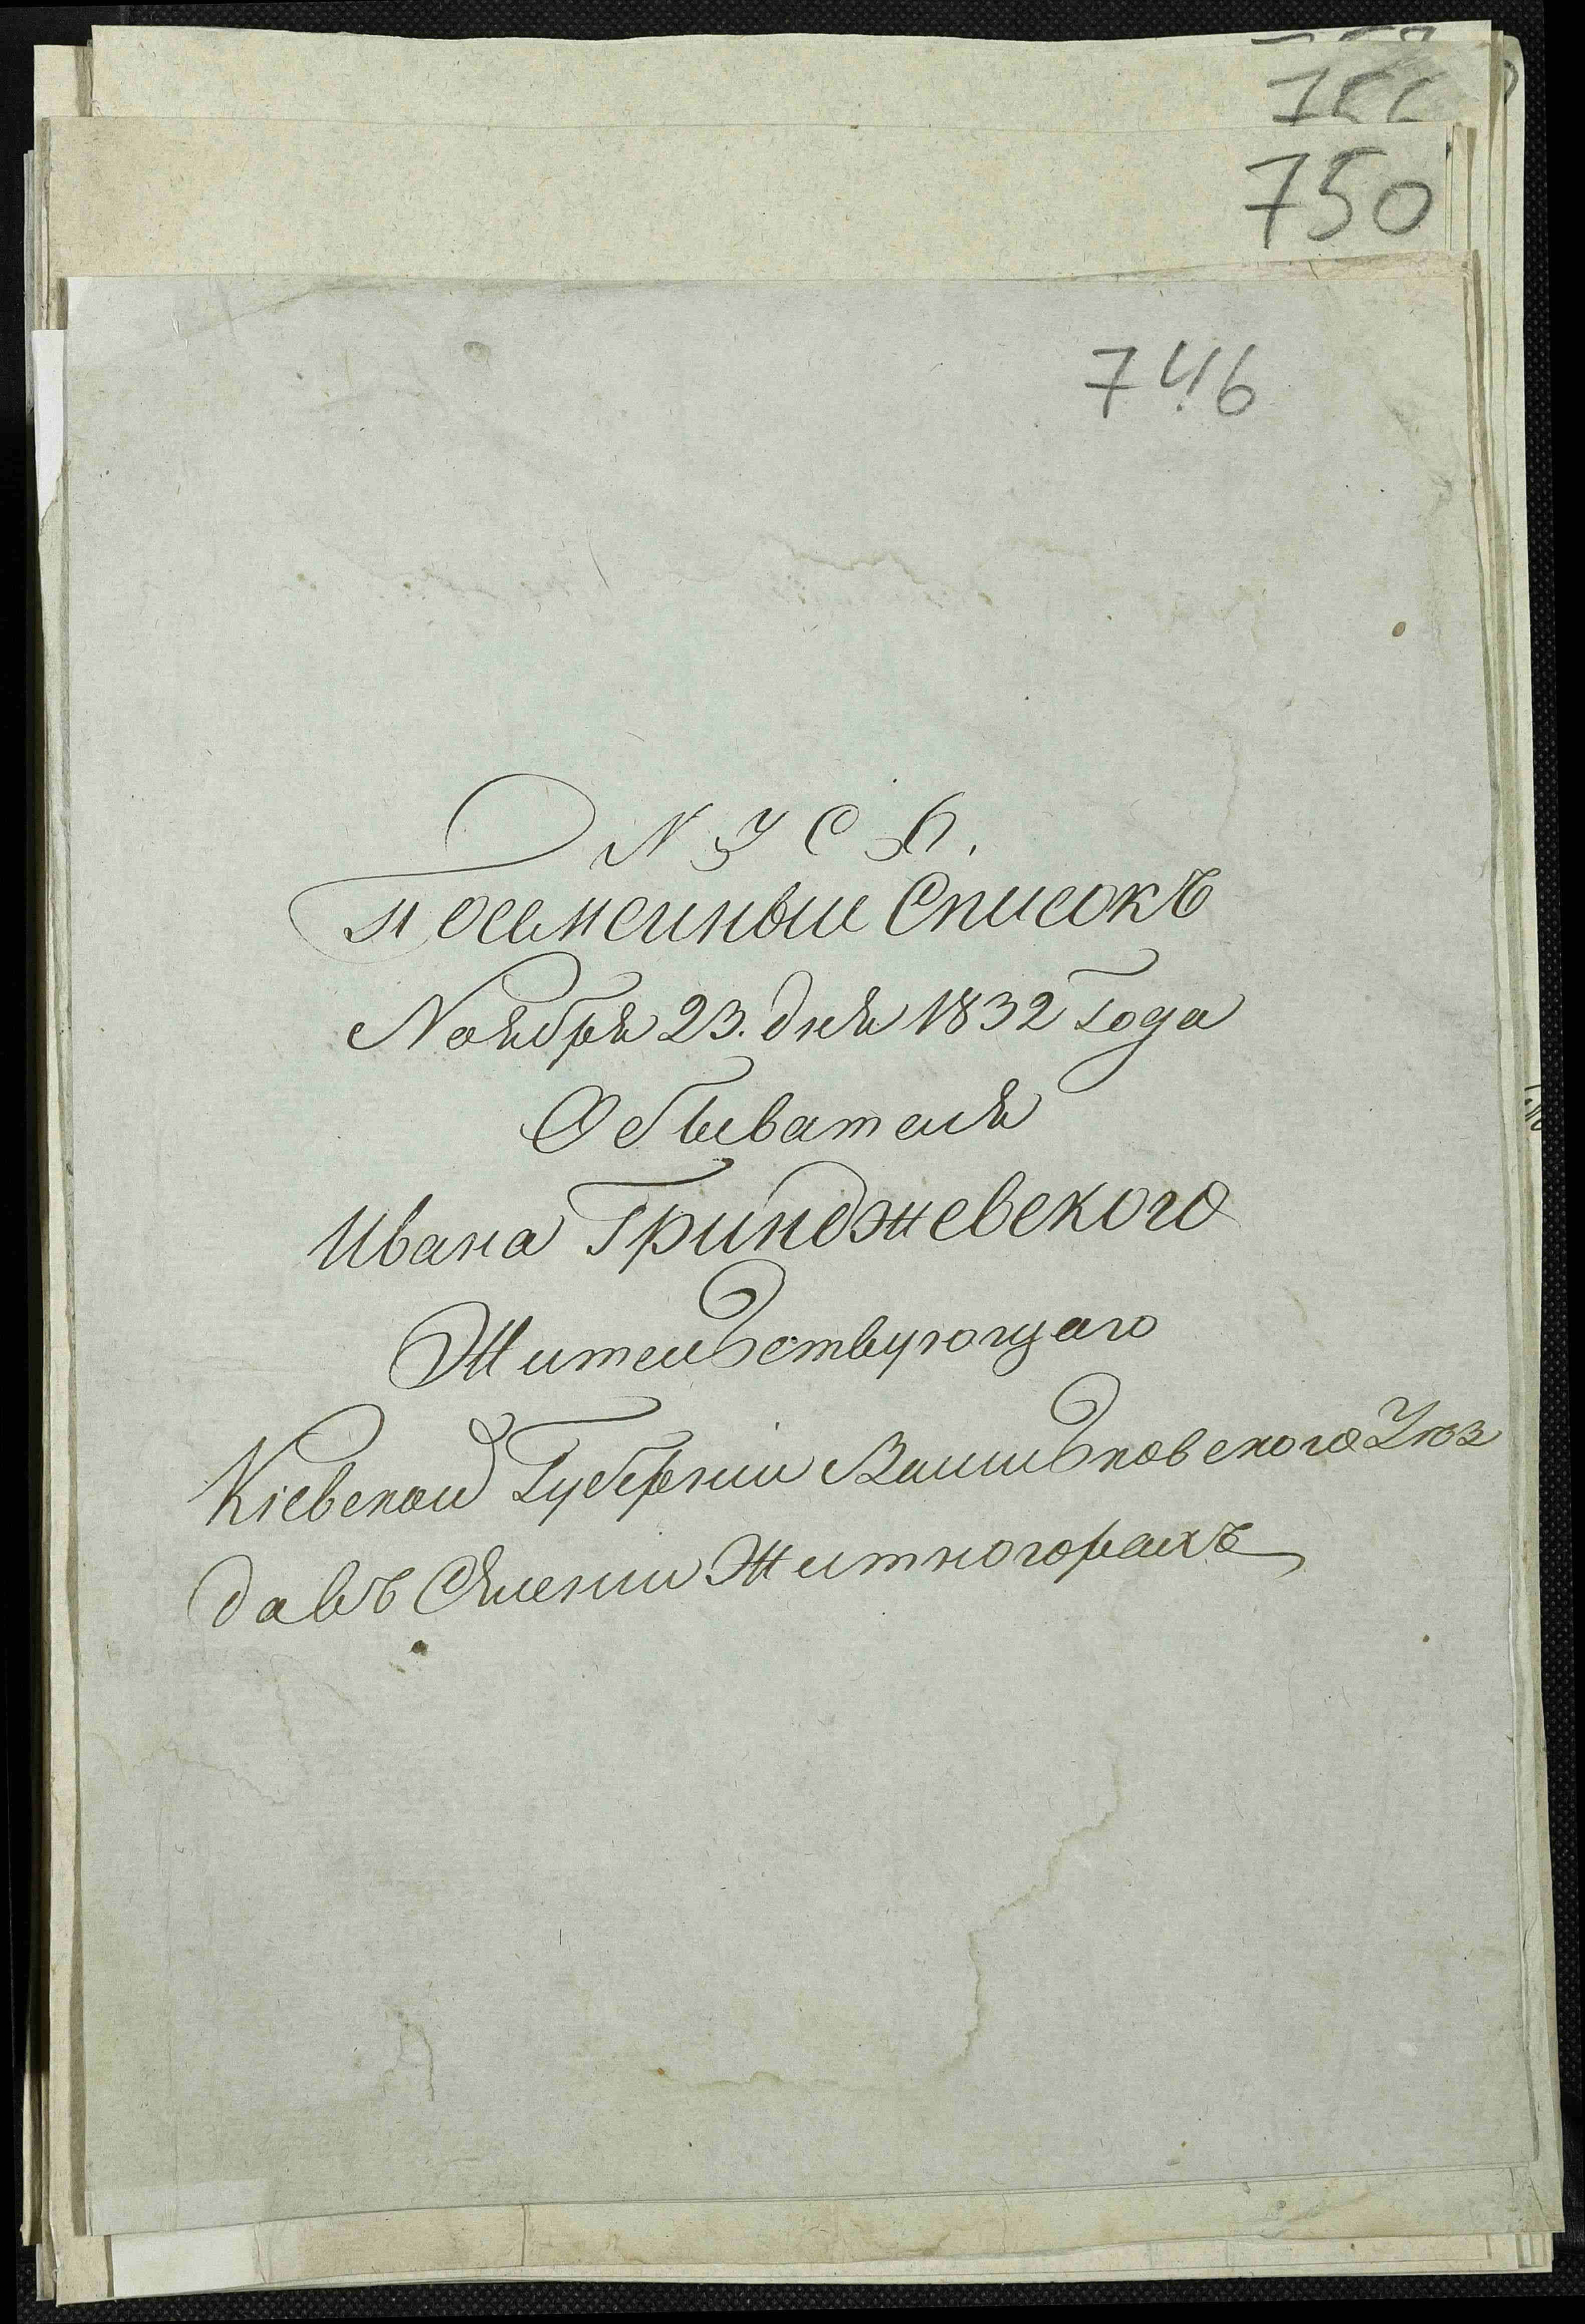 750
746
Посемейные Списокъ
Ноября 23. дня 1832 Года
Обывателя
Ивана Гринджевского
Жительствующаго
Кіевской Губерніи Васильковского Уюз
да въ Имении Житногорахъ